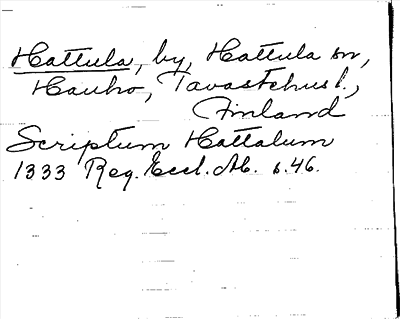 Hattula, by, Hattula sn,
Hauho, Tavastehusl.,
Finland
Scriptum Hattalum
1333 Reg. Eccl. Ab. s. 46.